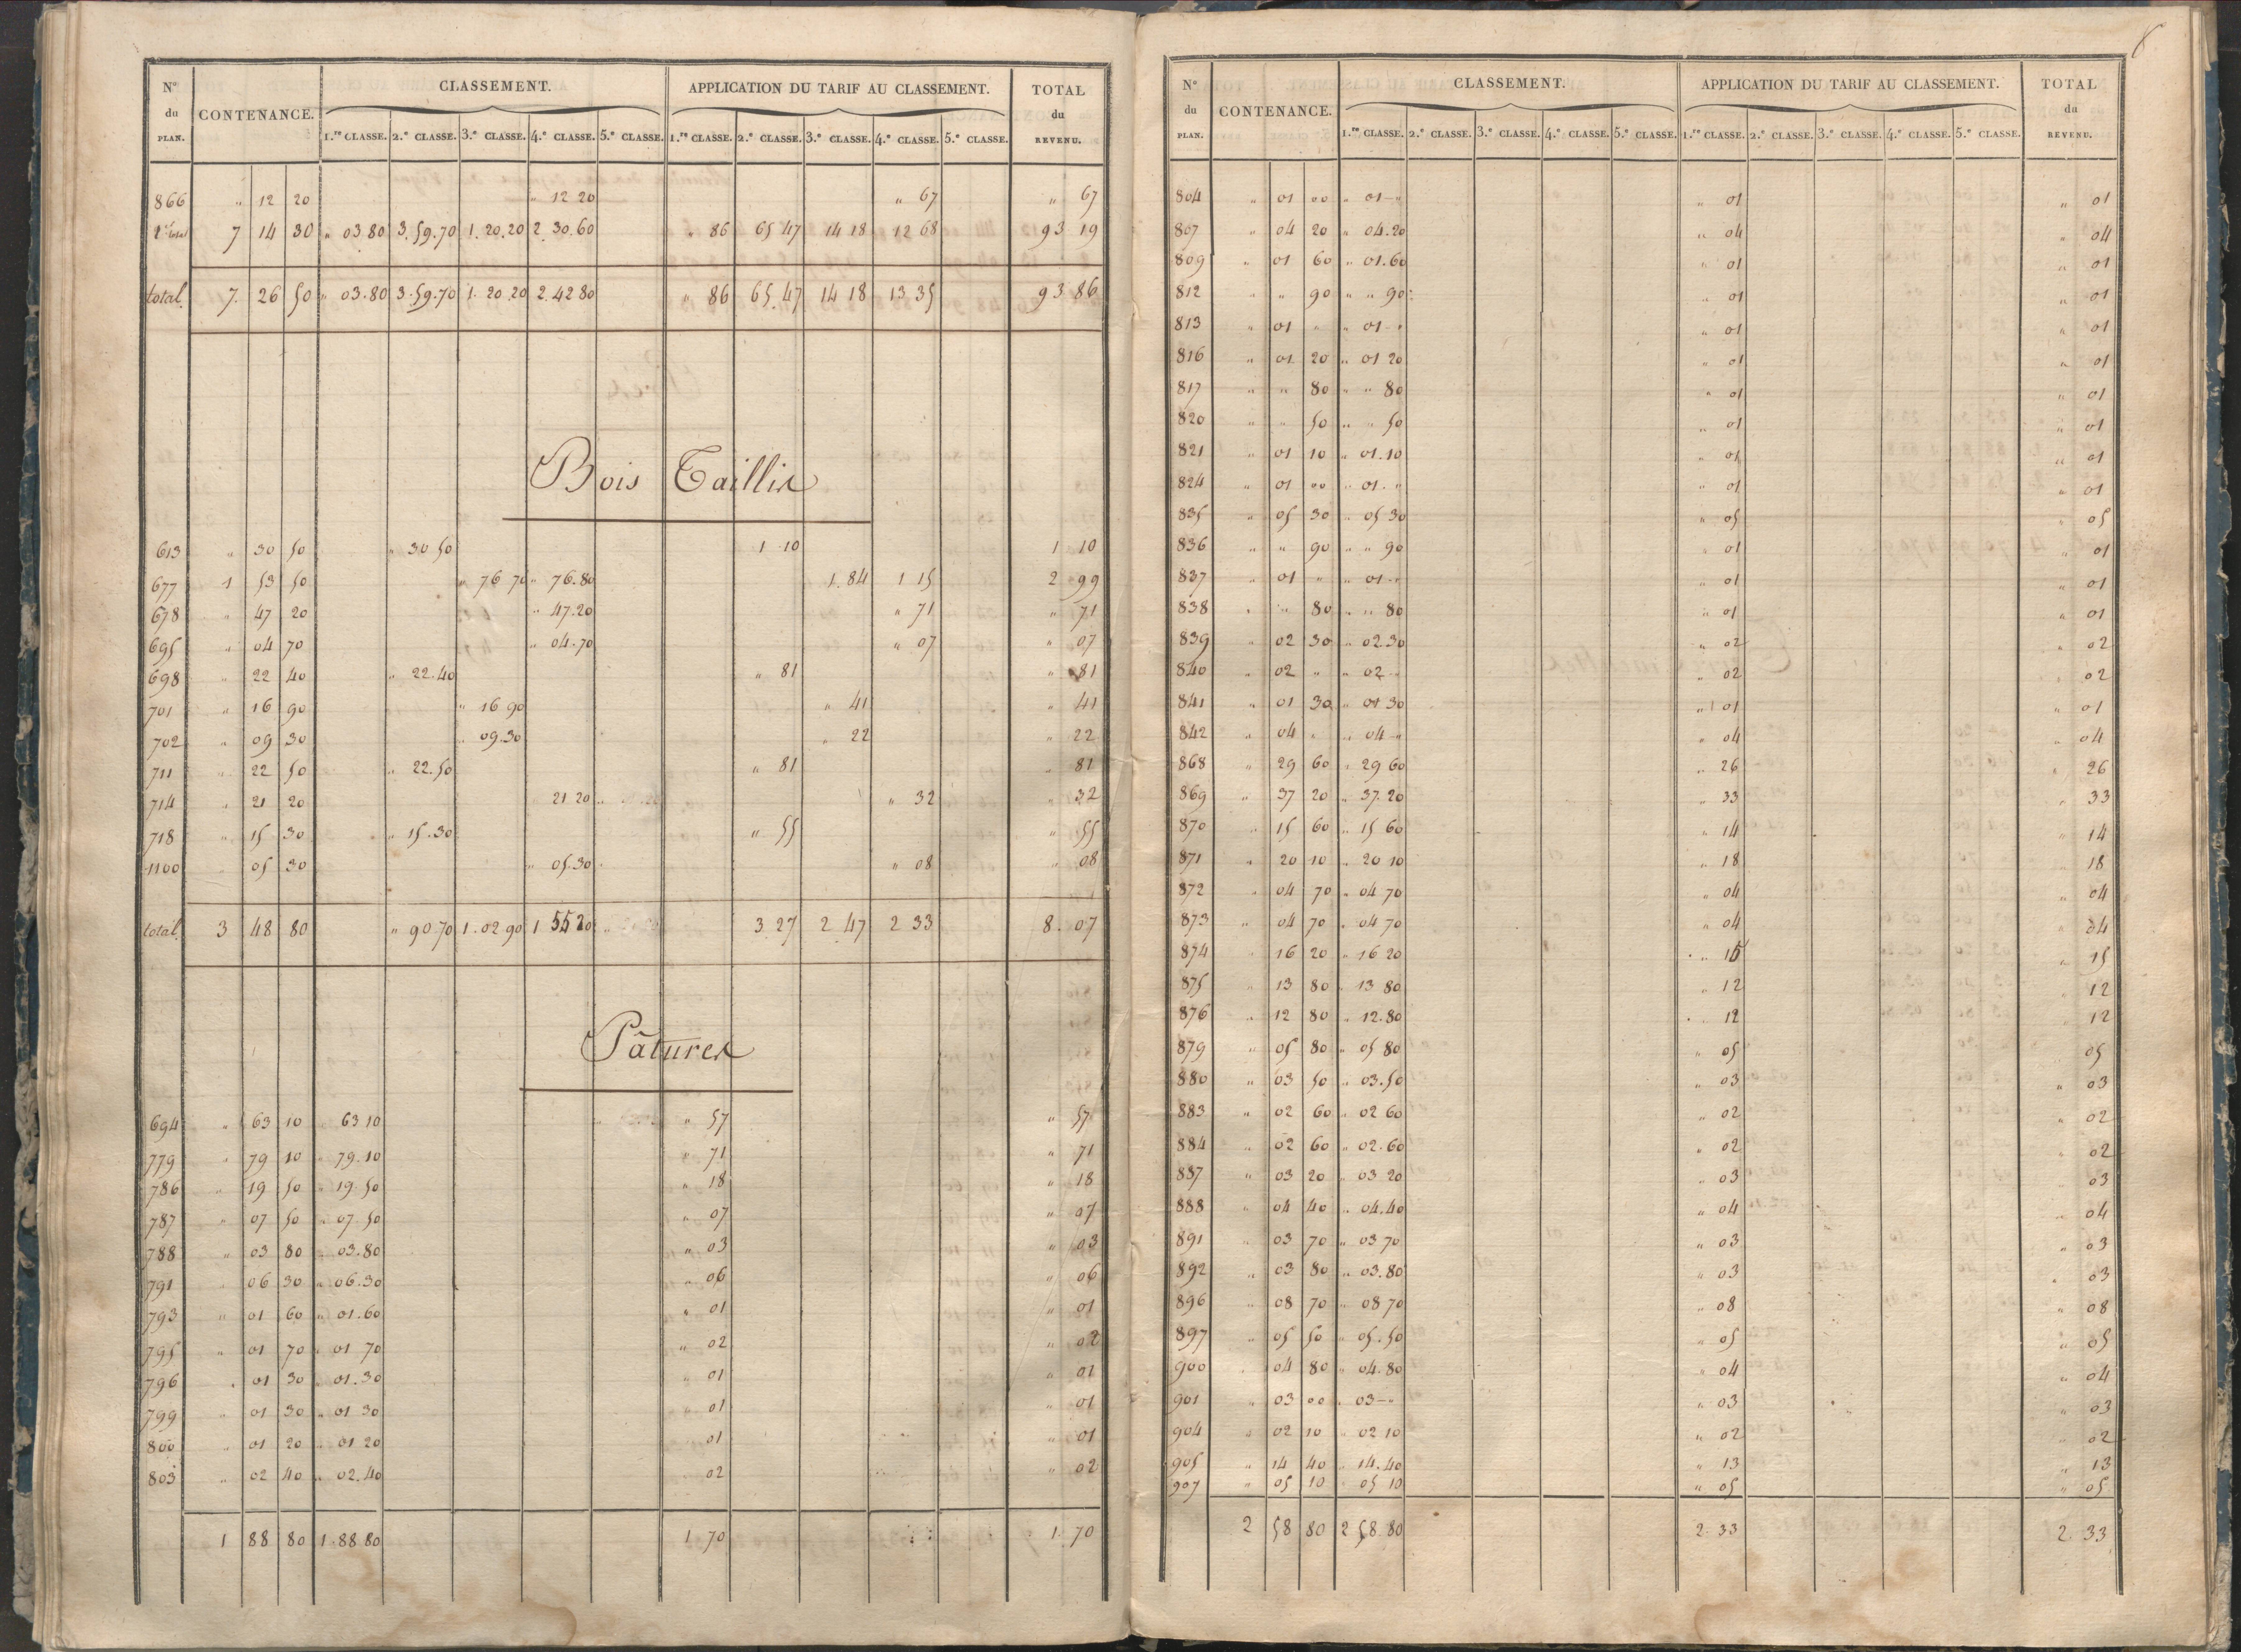 N° du PLAN. CONTENANCE. CLASSEMENT. APPLICATION DU TARIF AU CLASSEMENT. TOTAL du REVENU.
1.re CLASSE. 2.e CLASSE. 3.e CLASSE. 4.e CLASSE. 5.e CLASSE. 1.re CLASSE. 2.e CLASSE. 3.e CLASSE. 4.e CLASSE. 5.e CLASSE.
866 " 12 20 " 12 20 " 67 " 67
7 14 30 " 03 80 3. 59. 70 1. 20. 20 2. 30. 60 " 86 65 47 14 18 12 68 93 19
total 7. 26 50 " 03. 80 3. 59. 70 1. 20. 20 2. 42 80 " 86 65. 47 14 18 13 35 93 86
Bois Taillis
613 " 30 50 " 30 50 1 10 1 10
677 1 53 50 " 76 70 " 76. 80 1. 84 1 15 2 99
678 " 47 20 " 47. 20 " 71 " 71
695 " 04 70 " 04. 70 " 07 " 07
698 " 22 40 " 22. 40 " 81 " 81
701 " 16 90 " 16 90 " 41 " 41
702 " 09 30 " 09. 30 " 22 " 22
711 " 22 50 " 22. 50 " 81 " 81
714 " 21 20 21 20 " 32 " 32
718 " 15 30 " 15. 30 " 55 " 55
1100 " 05 30 " 05. 30 " 08 " 08
total 3 48 80 " 90 70 1. 02 90 1 55 20 3 27 2 47 2 33 8. 07
Pâtures
694 " 63 10 63 10 " 57 " 57
779 " 79 10 " 79. 10 " 71 " 71
786 " 19 50 " 19. 50 " 18 " 18
787 " 07 50 " 07. 50 " 07 " 07
788 " 03 80 " 03. 80 " 03 " 03
791 " 06 30 " 06. 30 " 06 " 06
793 " 01 60 " 01. 60 " 01 " 01
795 " 01 70 " 01 70 " 02 " 02
796 " 01 30 " 01. 30 " 01 " 01
799 " 01 30 " 01 30 " 01 " 01
800 " 01 20 " 01 20 " 01 " 01
803 " 02 40 " 02. 40 " 02 " 02
1 88 80 1. 88 80 1 70 1. 70
6
N° du PLAN. CONTENANCE. CLASSEMENT. APPLICATION DU TARIF AU CLASSEMENT. TOTAL du REVENU.
1.re CLASSE. 2.e CLASSE. 3.e CLASSE. 4.e CLASSE. 5.e CLASSE. 1.re CLASSE. 2.e CLASSE. 3.e CLASSE. 4.e CLASSE. 5.e CLASSE.
804 " 01 00 " 01 - " " 01 " 01
807 " 04 20 " 04. 20 " 04 " 04
809 " 01 60 " 01. 60 " 01 " 01
812 " " 90 " " 90 " 01 " 01
813 " 01 " " 01 - " " 01 " 01
816 " 01 20 " 01 20 " 01 " 01
817 " " 80 " " 80 " 01 " 01
820 " " 50 " " 50 " 01 " 01
821 " 01 10 " 01. 10 " 01 " 01
824 " 01 00 " 01. " " 01 " 01
835 " 05 30 " 05 30 " 05 " 05
836 " " 90 " " 90 " 01 " 01
837 " 01 " " 01 - " " 01 " 01
838 " " 80 " " 80 " 01 " 01
839 " 02 30 " 02. 30 " 02 " 02
840 " 02 " " 02 - " 02 " 02
841 " 01 30 " 01 30 " 01 " 01
842 " 04 " " 04 - " " 04 " 04
868 " 29 60 " 29 60 " 26 " 26
869 " 37 20 " 37. 20 " 33 " 33
870 " 15 60 " 15 60 " 14 " 14
871 " 20 10 " 20 10 " 18 " 18
872 " 04 70 " 04 70 " 04 " 04
873 " 04 70 " 04 70 " 04 " 04
874 " 16 20 " 16 20 " 15 " 15
875 " 13 80 " 13 80 " 12 " 12
876 " 12 80 " 12. 80 " 12 " 12
879 " 05 80 " 05 80 " 05 05
880 " 03 50 " 03. 50 " 03 " 03
883 " 02 60 " 02 60 " 02 " 02
884 " 02 60 " 02. 60 " 02 " 02
887 " 03 20 " 03 20 " 03 " 03
888 " 04 40 " 04. 40 " 04 " 04
891 " 03 70 " 03 70 " 03 " 03
892 " 03 80 " 03. 80 " 03 " 03
896 " 08 70 " 08 70 " 08 " 08
897 " 05 50 " 05. 50 " 05 " 05
900 " 04 80 " 04. 80 " 04 " 04
901 " 03 00 " 03 - " " 03 " 03
904 " 02 10 " 02 10 " 02 " 02
905 " 14 40 " 14. 40 " 13 " 13
907 " 05 10 " 05 10 " 05 " 05
2 58 80 2 58. 80 2. 33 2. 33